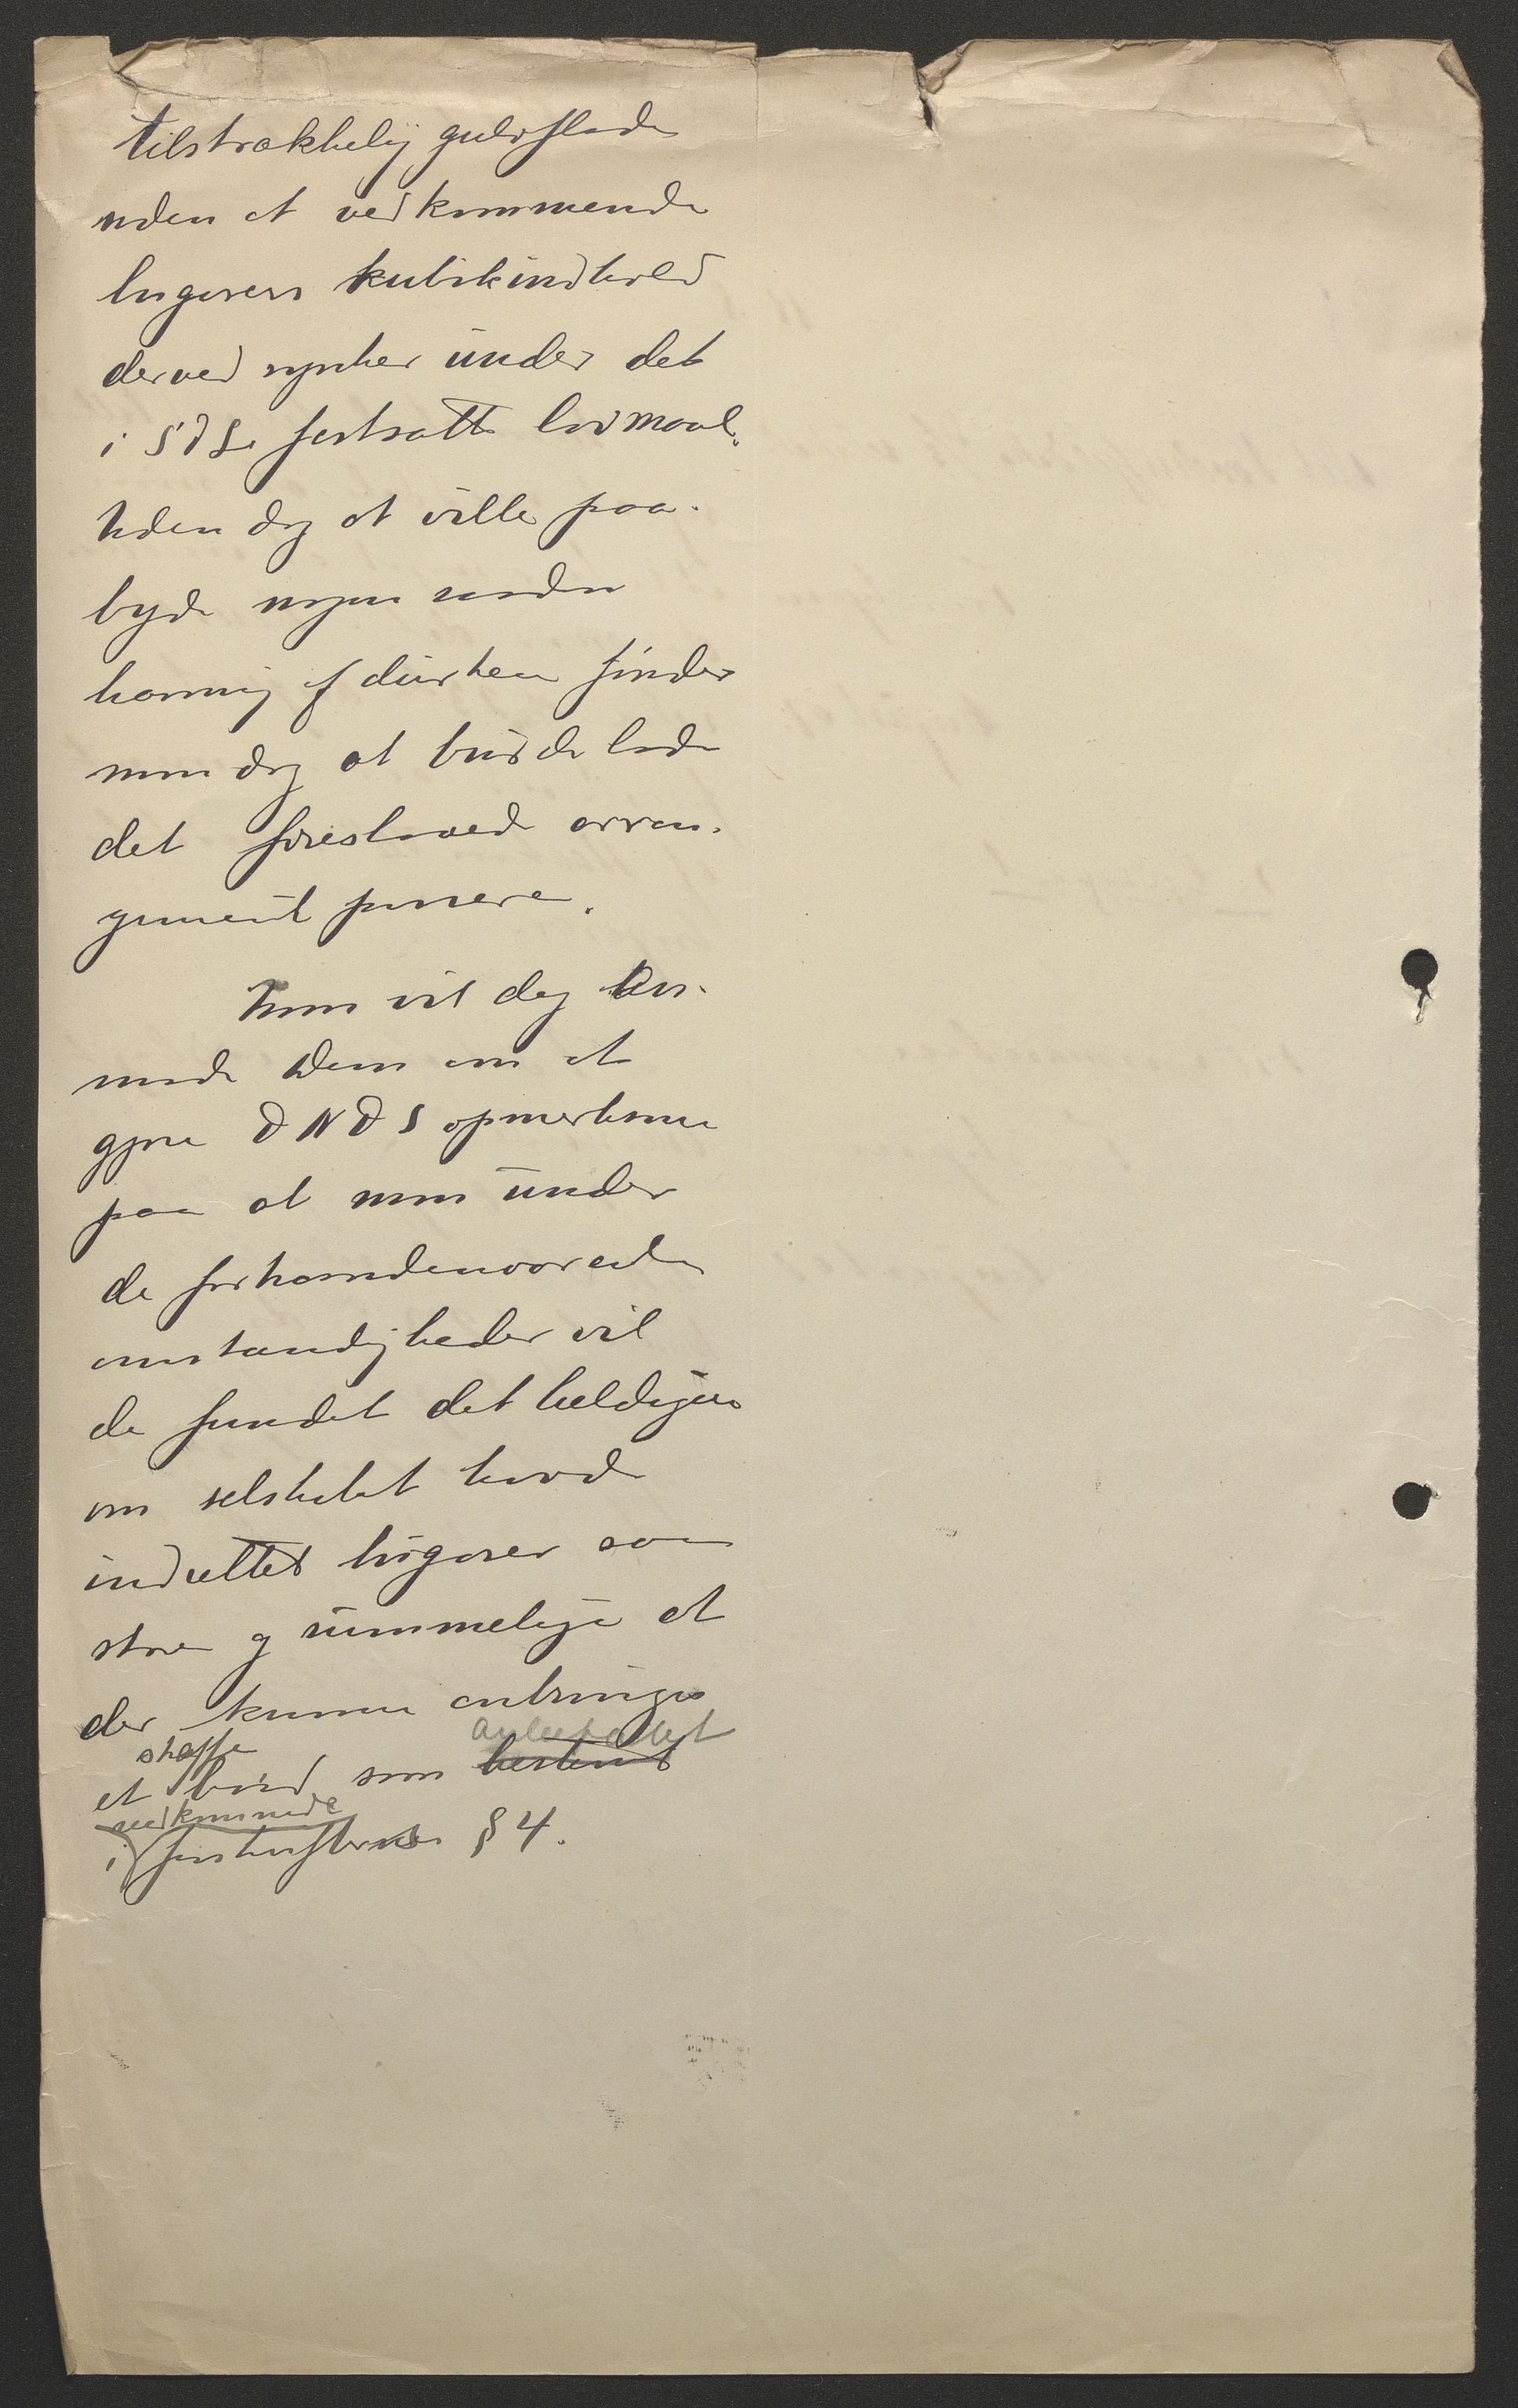 tilstrækkelig gulvflade
uden at vedkommende
lugarers kubikindhold
derved synker under det
i SDL. fastsatte lovmaal.
Uden dog at ville paa-
byde nogen
af dørken finder
man dog at burde lade
det foreslaaede arran-
gement passere.
Man vil dog an-
mode Dem om at
gjøre D N D S opmerksom
paa at man under
de forhaandenværende
omstændigheder vil
de fundet det heldigere
om selskabet havde
indrettet lugarer saa
store og rummelige at
der kunne anbringes
skaffe anbefalet
et bord som bestemt
vedkommende
i forskrifternes § 4.